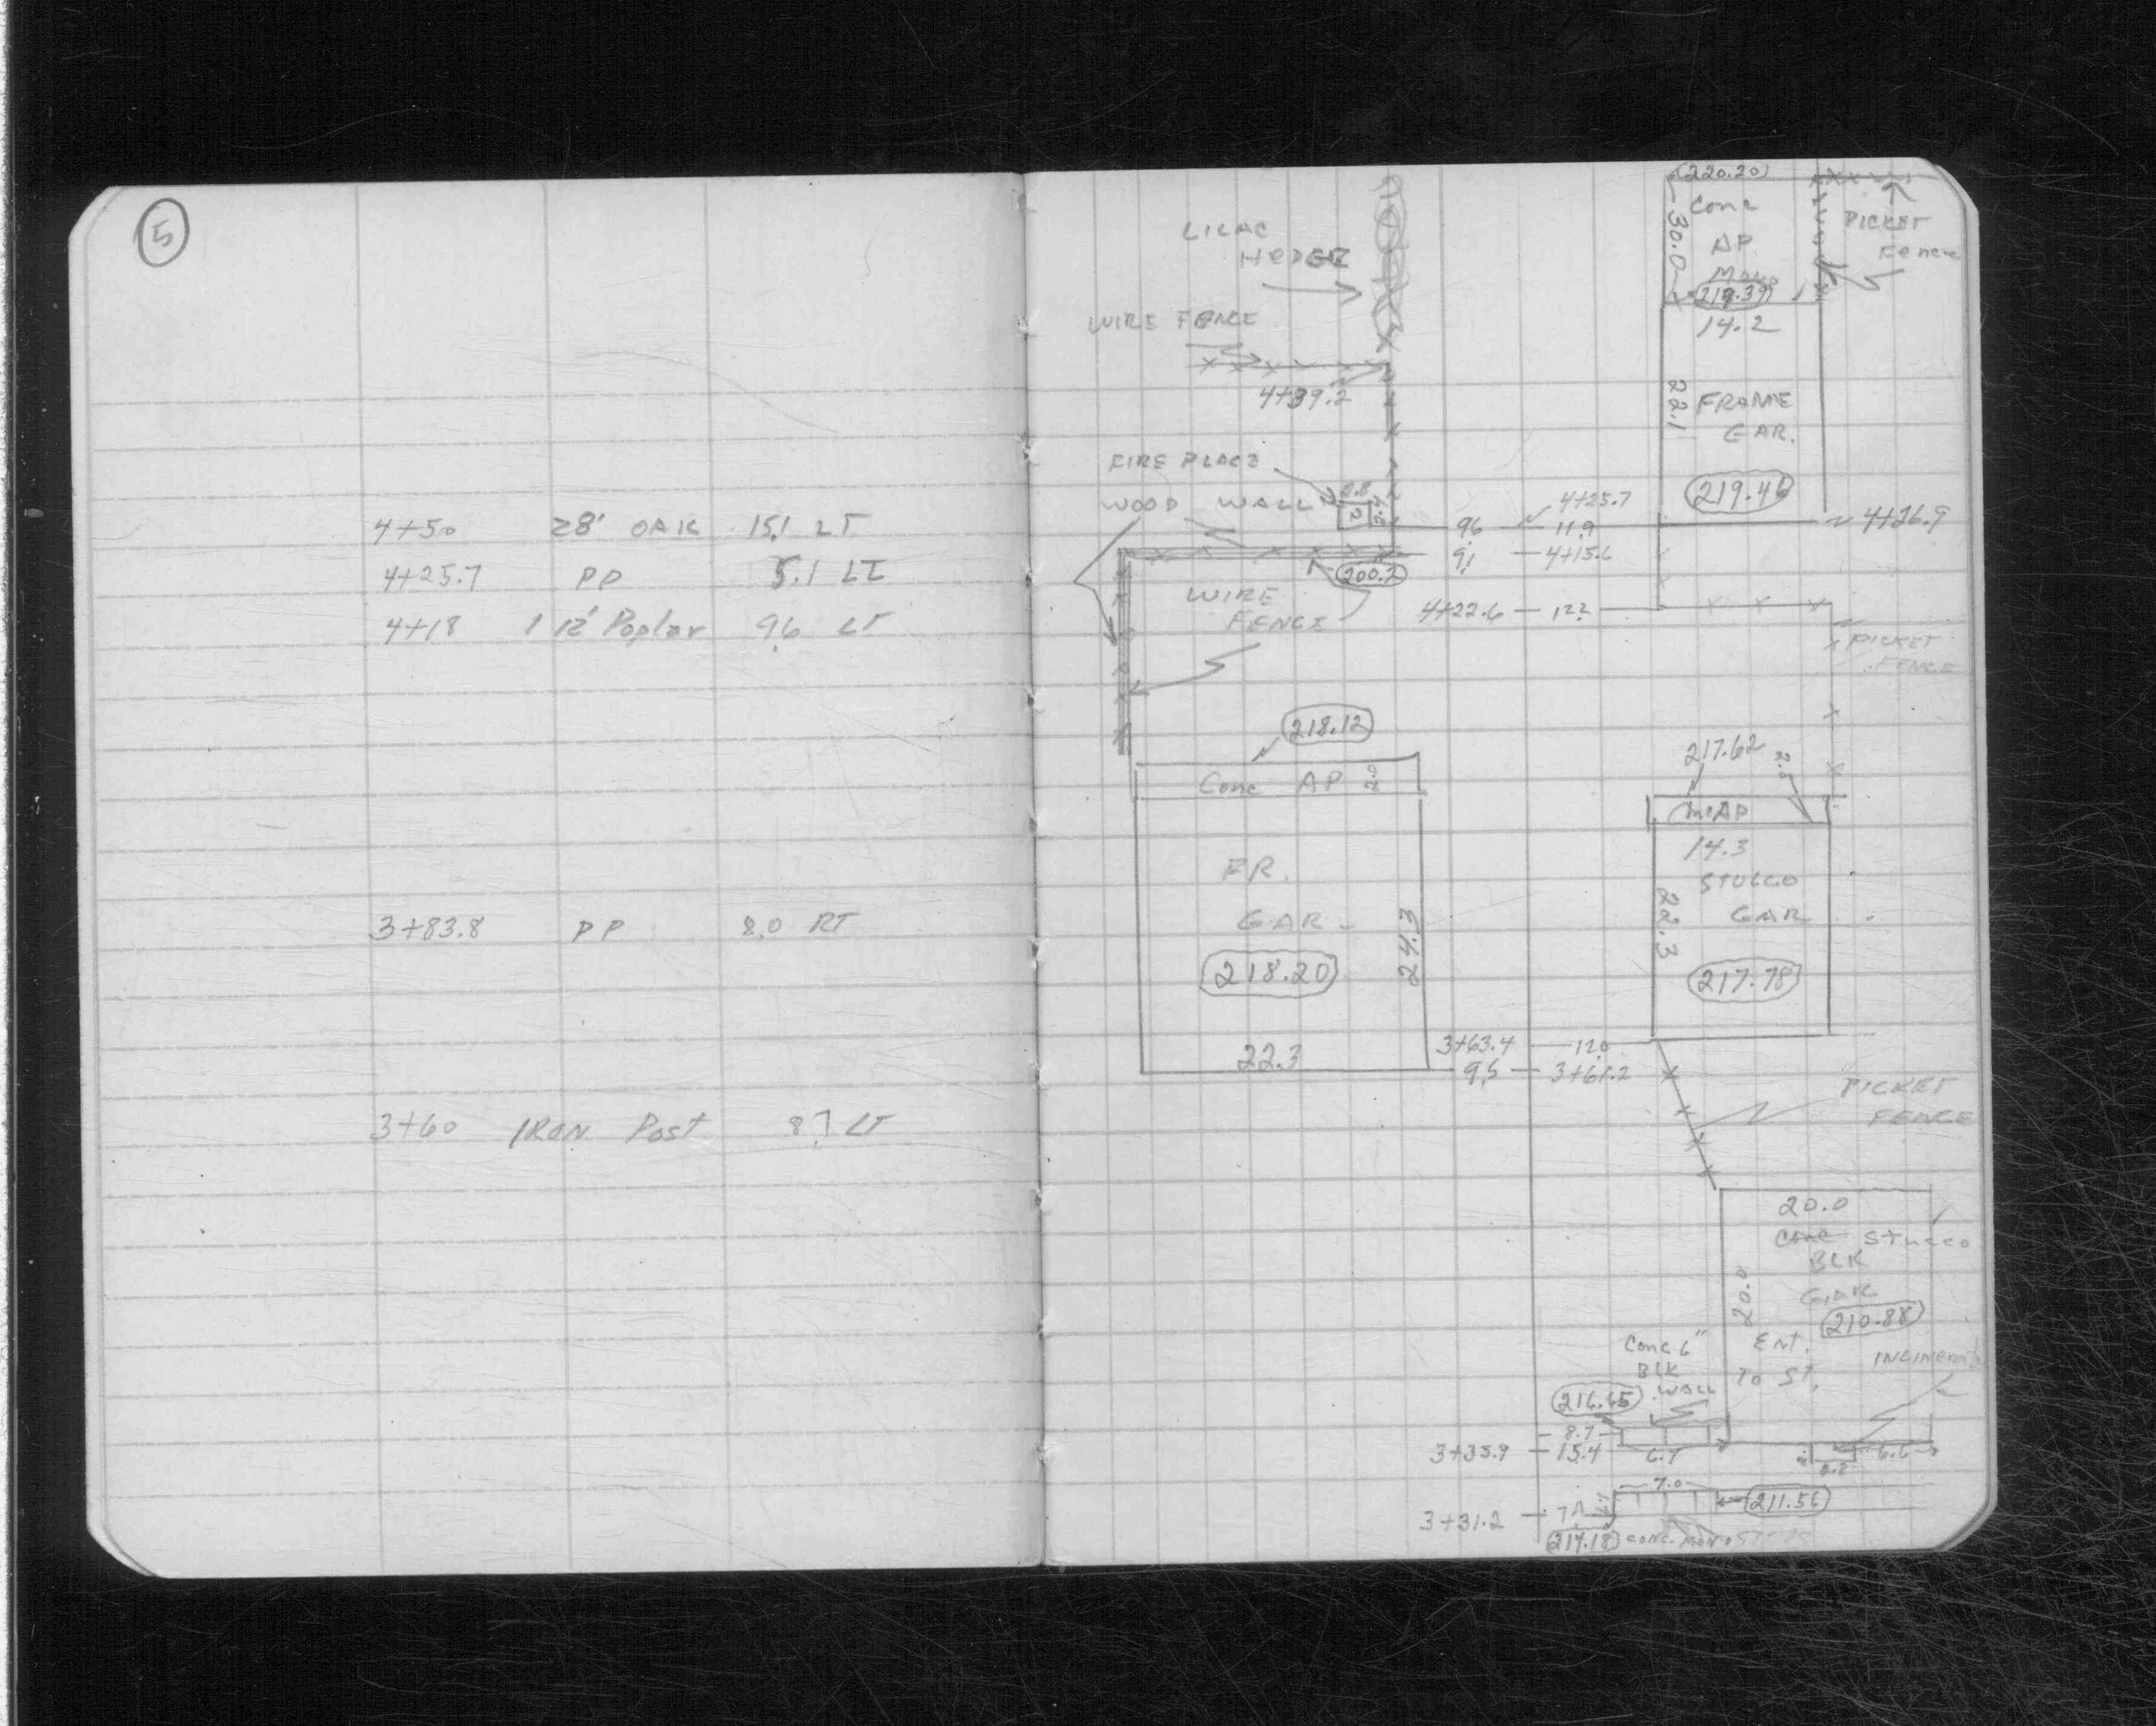 5
4+50 28" OAK 15.1 LT
4+25.7 PP 5.1 LT
4+18 1 12" Poplar 9.6 LT
3+83.8 PP 8.0 RT
3+60 IRON Post 8.7 LT
(220.20)
Conc
AP
30.0
219.39
14.2
PICKET
Fence
LILAC
HEDGE
WIRE FENCE
4+39.2
22.1
FRAME
GAR.
219.46
FIRE PLACE
WOOD WALL
4+25.7
9.6 11.9
4+26.9
9.1 4+15.6
200.7
WIRE
FENCE
4+22.6 12.2
PICKET
FENCE
218.12
Conc AP 2.0
217.62
14.3
STUCCO
GAR
22.3
217.78
FR.
GAR
24.3
218.20
22.3
3+63.4 12.0
9.5 3+61.2
PICKET
FENCE
20.0
Conc Stucco
BLK
GAR
20.0
210.88
Conc 6"
BLK
WALL
Ent.
To ST.
216.65
8.7
3+35.9 15.4 6.7
6.6
7.0
211.56
3+31.2
217.18
CONC. MONO STEPS